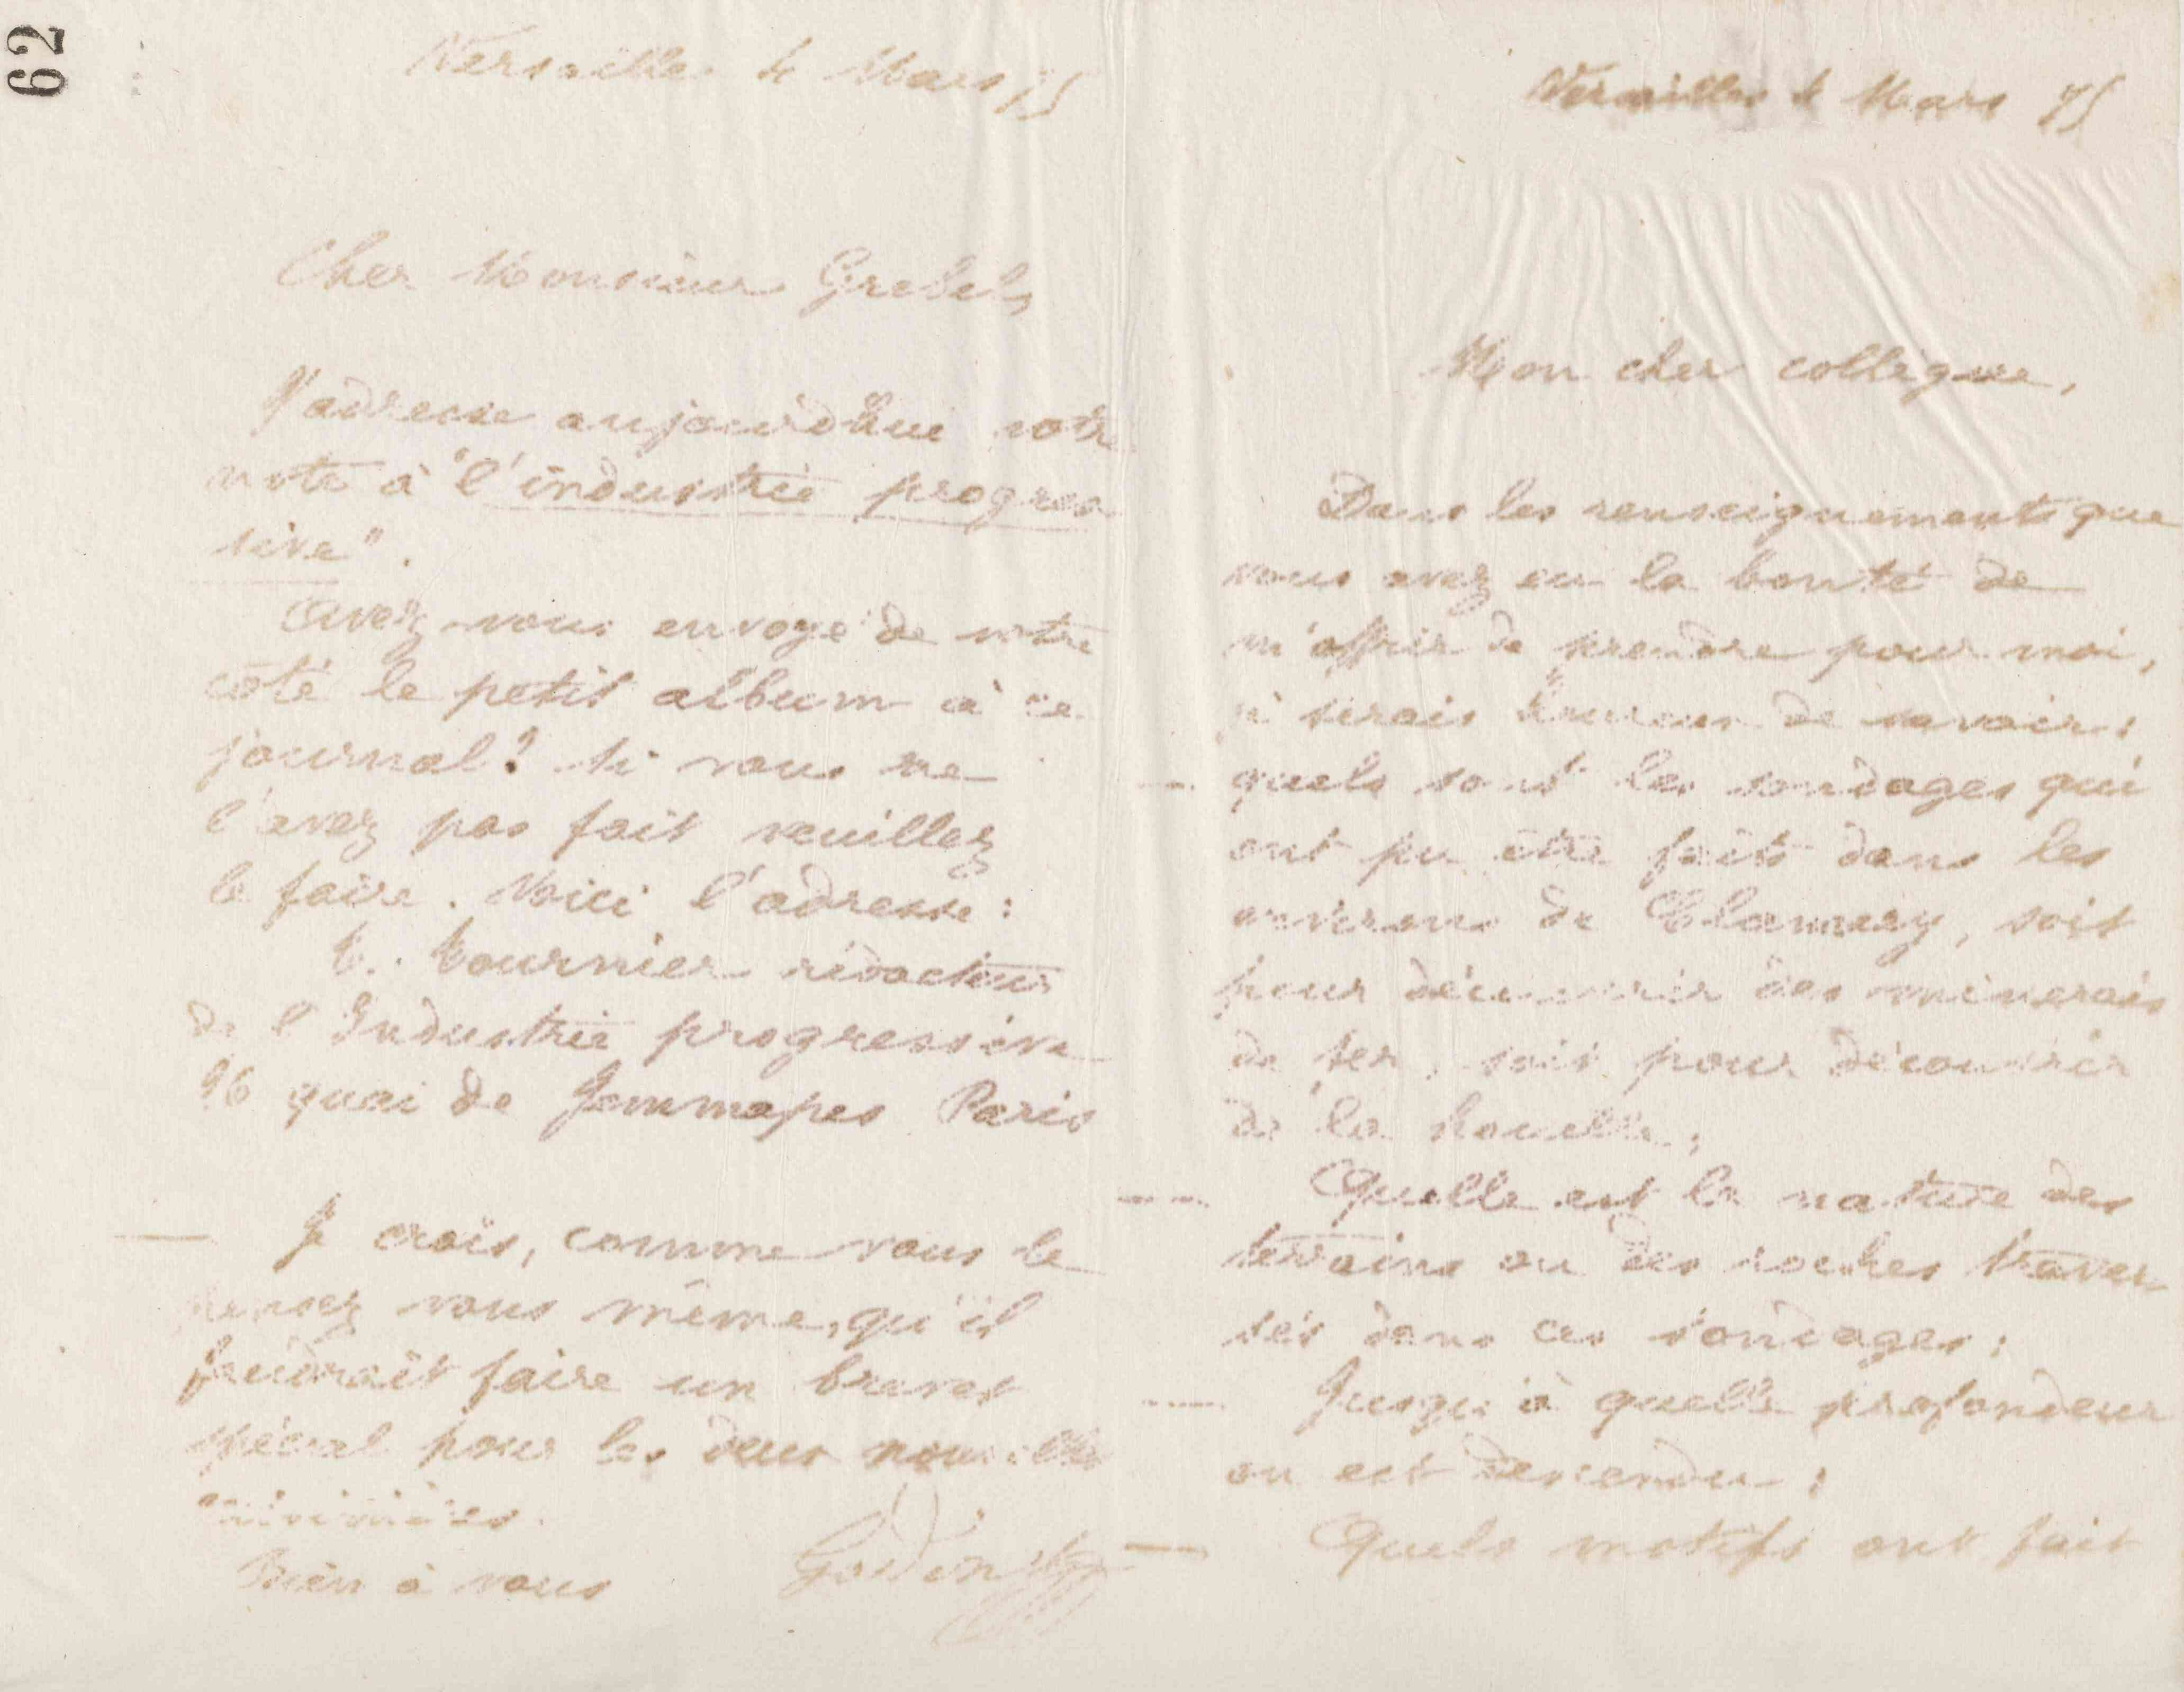 62
Versailles 4 Mars 75
Cher Monsieur Grebel,
J'adresse aujourd'hui votre
note à "l'industrie progres
sive".
Avez-vous envoyé de votre
côté le petit album à ce
journal? Si vous ne
l'avez pas fait veuillez
le faire. Voici l'adresse:
E. Fournier rédacteur
de l'Industrie progressive
96 quai de Jemmapes Paris
— Je crois, comme vous le
pensez vous même, qu'il
faudrait faire un brevet
spécial pour les deux nouvelles
cuisinières.
Bien à vous Godin
Versailles 4 Mars 75
Mon cher collègue,
Dans les renseignements que
vous avez eu la bonté de
m'offrir de prendre pour moi,
je serais heureux de savoir:
— quels sont les sondages qui
ont pu être faits dans les
environs de Clamecy, soit
pour découvrir des minerais
de fer, soit pour découvrir
de la houille;
— Quelle est la nature des
terrains ou des roches traver
sés dans ces sondages;
— Jusqu'à quelle profondeur
on est descendu;
— Quels motifs ont fait